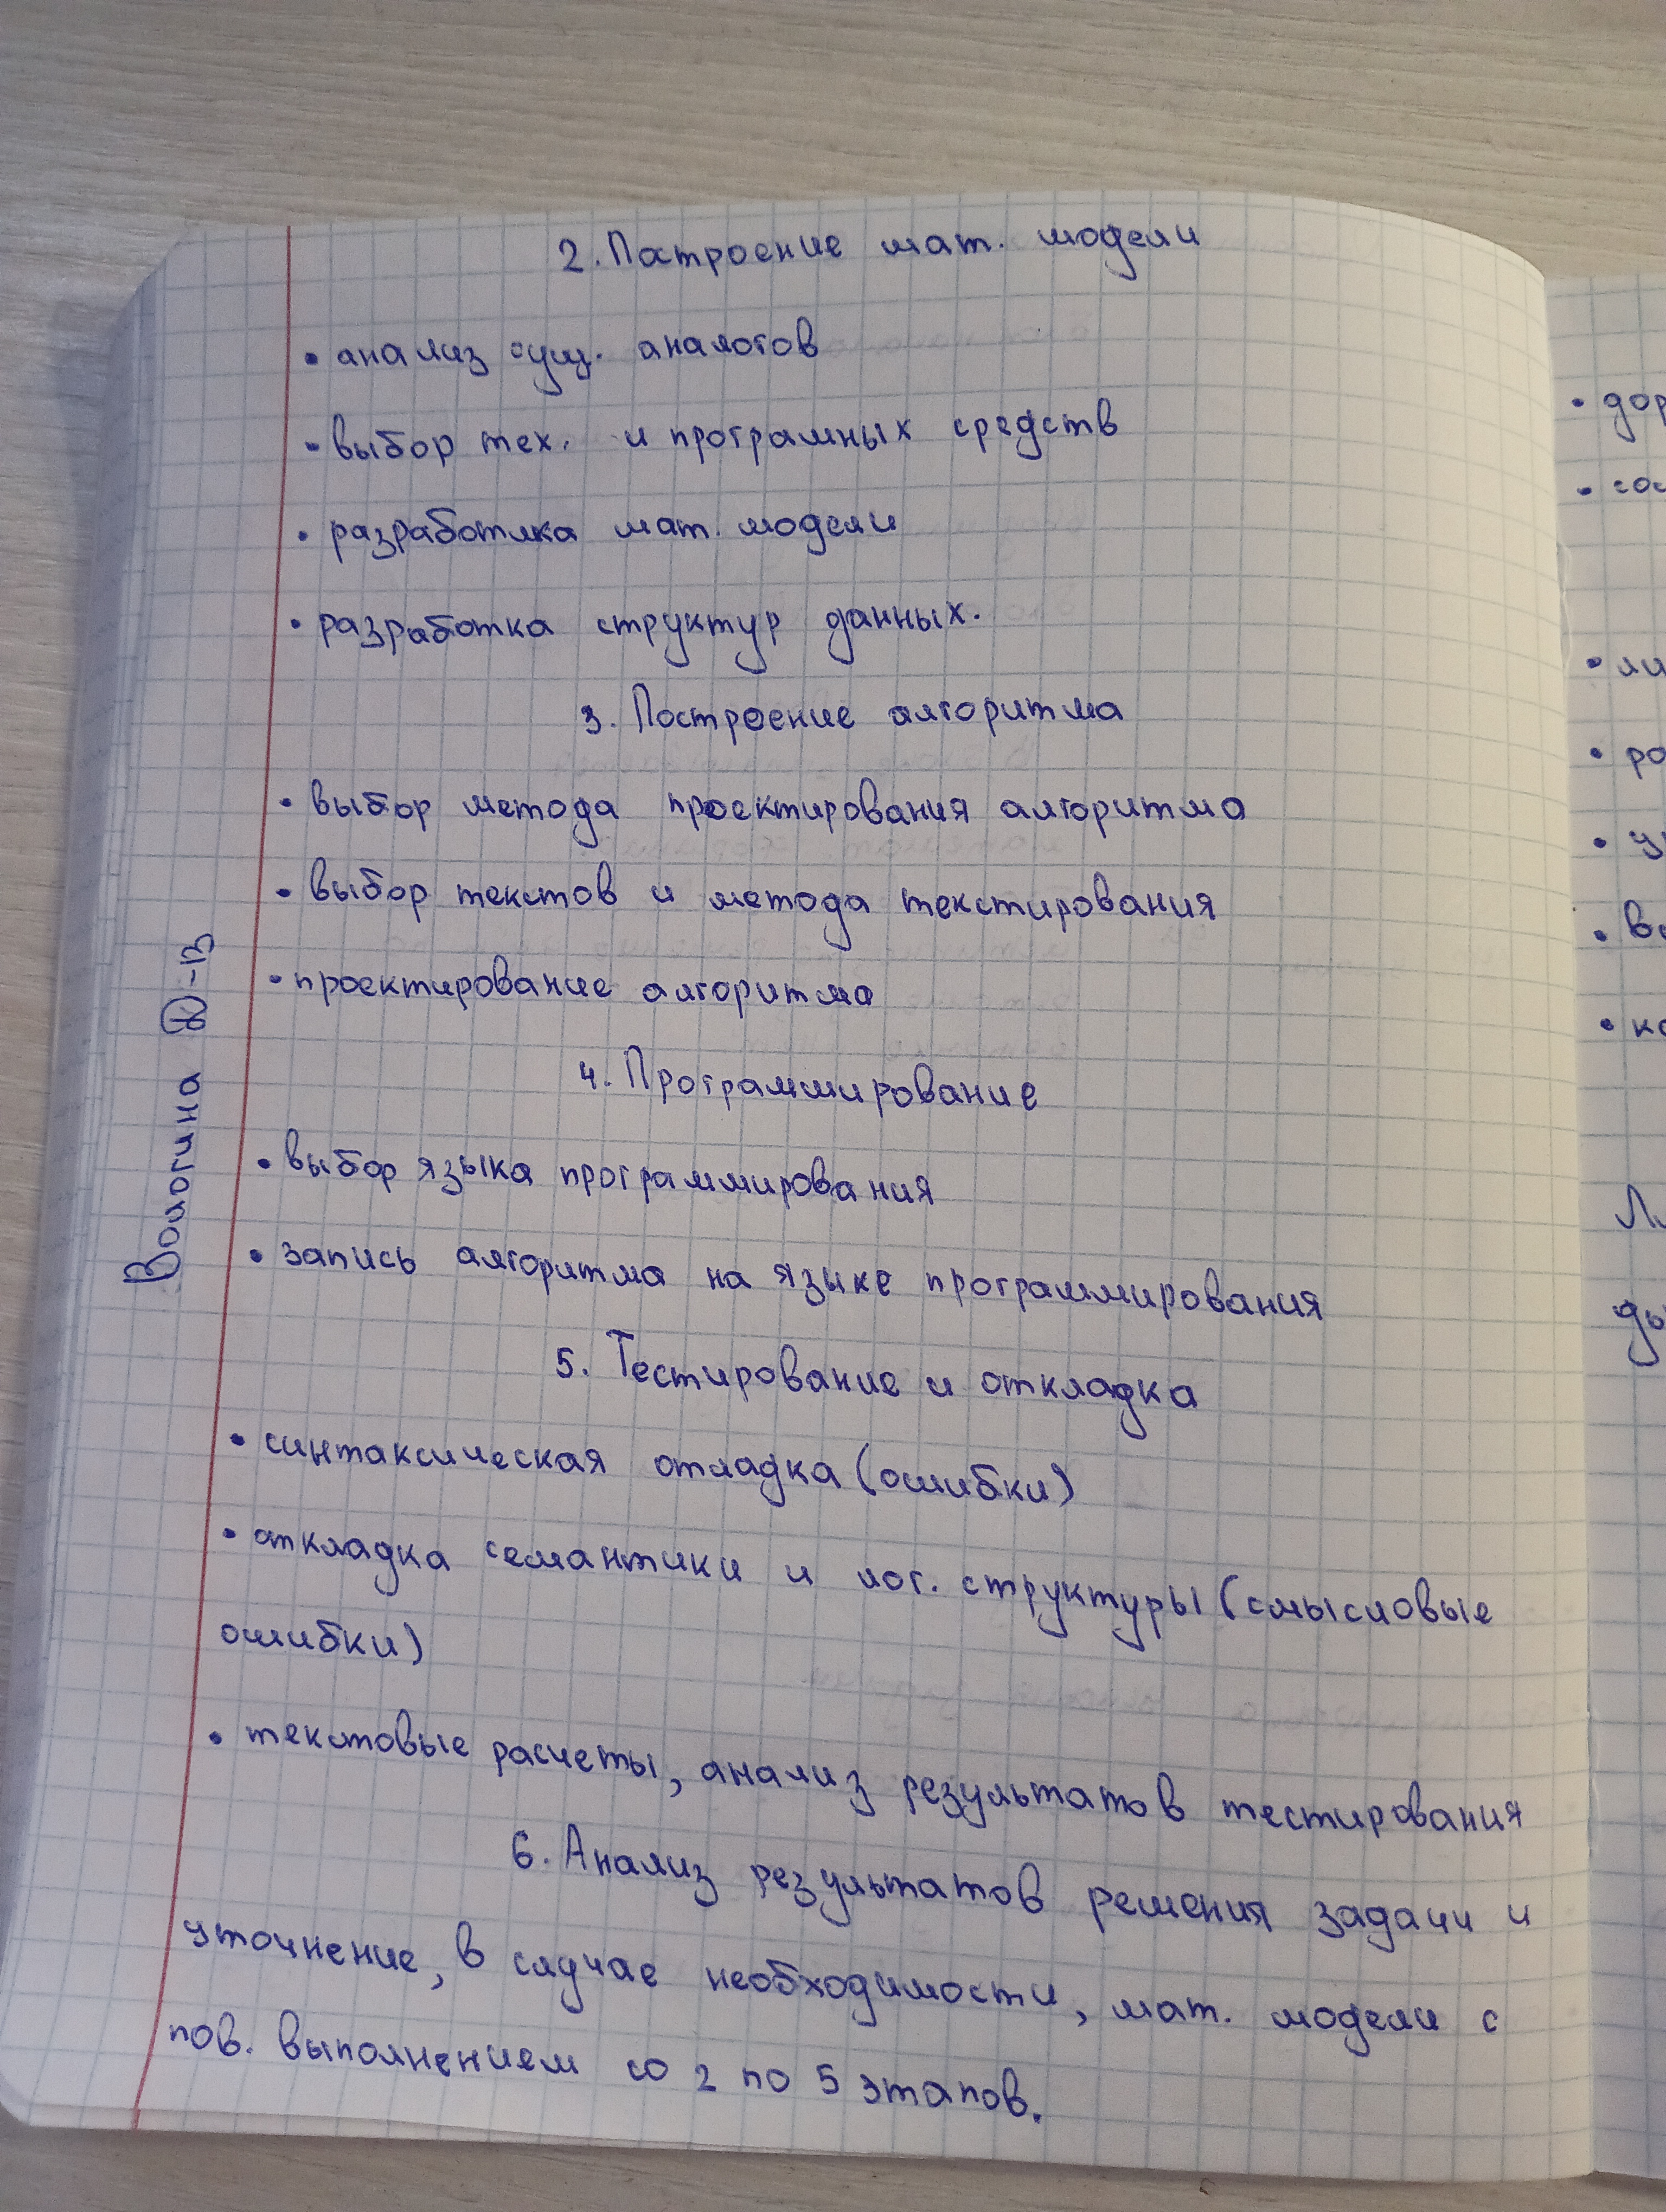 2. Построение мат. модели
• анализ сущ. аналогов
• выбор тех. и програмных средств
• разработка мат. модели
• разработка структур данных.
3. Построение алгоритма
• выбор метода проектирования алгоритма
• выбор текстов и метода текстирования
• проектирование алгоритма
4. Программирование
• выбор языка программирования
• запись алгоритма на языке программирования
5. Тестирование и откладка
• синтаксическая отладка (ошибки)
• откладка семантики и лог. структуры (смысловые
ошибки)
• текстовые расчеты, анализ результатов тестирования
6. Анализ результатов решения задачи и
уточнение, в случае необходимости, мат. модели с
пов. выполнением со 2 по 5 этапов.
Вологина